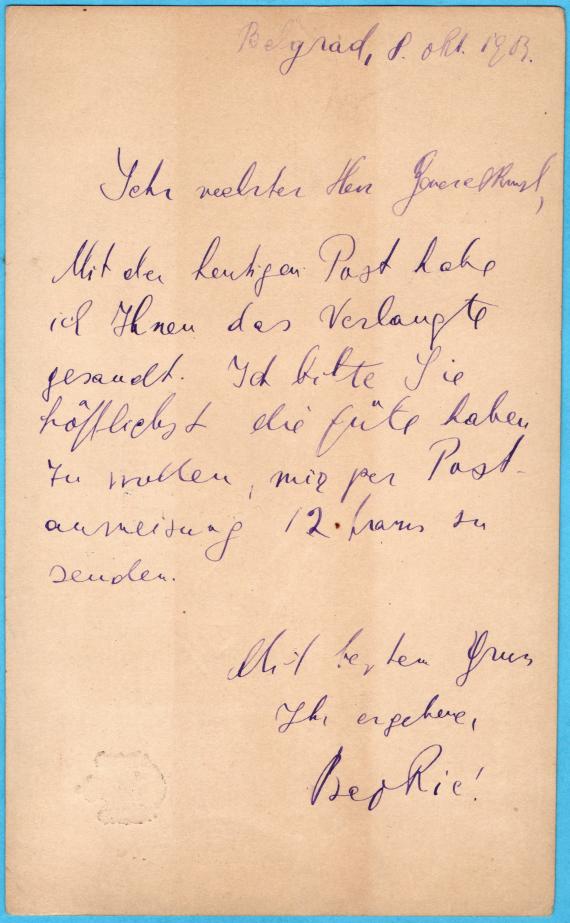 Belgrad, 8. okt. 1903.
Sehr veehrter Herr
Mit der heutigen Post habe
ich Ihnen das Verlangte
gesandt. Ich bitte Sie
höfflichst die Güte haben
zu wollen, mir per Post-
anweisung 12 francs zu
senden.
Mit bestem Gruss
Ihr ergebener